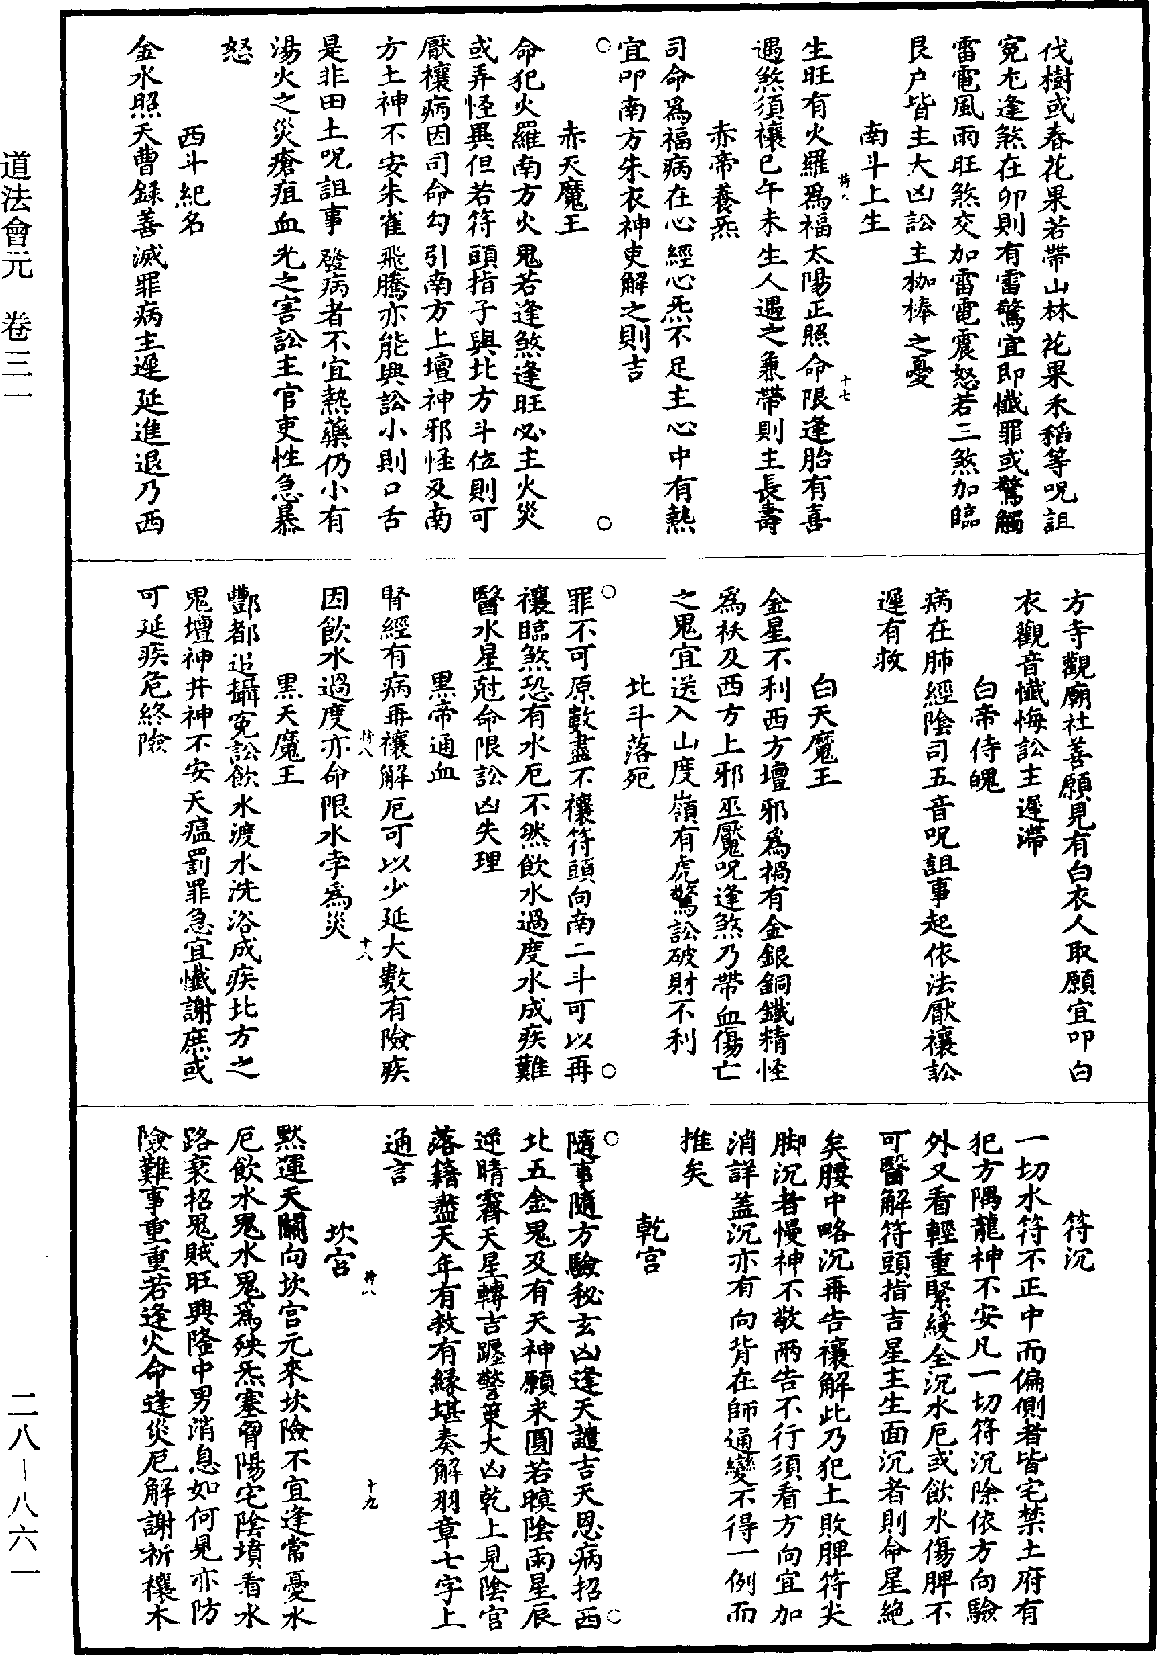 伐樹或春花果若帶山林花果禾稻等呪詛
冤尢逢煞在卯則有雷驚宜即懺罪或驚觸
雷電風雨旺煞交加雷電震怒若三煞加臨
艮户皆主大凶訟主枷棒之憂
南斗上生
生旺有火羅爲福太陽正照命限逢胎有喜
遇煞須禳巳午未生人遇之兼帶則主長壽
赤帝養炁
司命爲福病在心經心炁不足主心中有熱
宜叩南方朱衣神吏解之則吉
赤天魔王
命犯火羅南方火鬼若逢煞逢旺必主火災
或弄怪異但若符頭指子與北方斗位則可
厭禳病因司命勾引南方上壇神邪怪及南
方土神不安朱雀飛騰亦能興訟小則口舌
是非田土呪詛事發病者不宜熱藥仍小有
湯火之災瘡疽血光之害訟主官吏性急暴
怒
西斗紀名
金水照天曹錄善滅罪病主遲延進退乃西
方寺觀廟社善願見有白衣人取願宜叩白
衣觀音懺悔訟主遲滯
白帝侍魄
病在肺經陰司五音呪詛事起依法厭禳訟
遲有救
白天魔王
金星不利西方壇邪爲禍有金銀銅鐵精怪
爲袄及西方上邪巫魘呪逢煞乃帶血傷亡
之鬼宜送入山度嶺有虎驚訟破財不利
北斗落死
罪不可原數盡不禳符頭向南二斗可以再
禳臨煞恐有水厄不然飲水過度水成疾難
醫水星尅命限訟凶失理
黑帝通血
腎經有病再禳解厄可以少延大數有險疾
因飲水過度亦命限水孛爲災
黑天魔王
酆都追攝冤訟飲水渡水洗浴成疾北方之
鬼壇神井神不安天瘟罰罪急宜懺謝庶或
可延疾危終險
符沉
一切水符不正中而偏側者皆宅禁土府有
犯方隅龍神不安凡一切符沉除依方向驗
外又看輕重緊緩全沉水厄或飲水傷脾不
可醫解符頭指吉星主生面沉者則命星絶
矣腰中略沉再告禳解此乃犯土敗脾符尖
脚沉者慢神不敬兩告不行須看方向宜加
消詳蓋沉亦有向背在師通變不得一例而
推矣
乾宫
隨事隨方驗秘玄凶逢天譴吉天恩病招西
北五金鬼及有天神願未圓若暝陰雨星辰
逆晴霽天星轉吉躔訟策大凶乾上見陰官
落籍盡天年有救有緣堪奏解羽章七字上
通言
坎宫
默運天關向坎宫元來坎險不宜逢常憂水
厄飲水鬼水鬼爲殃炁塞胷陽宅陰墳看水
路衰招鬼賊旺興隆中男消息如何見亦防
險難事重重若逢火命逢災厄解謝祈禳木
道法會元　卷三一
二八－八六一